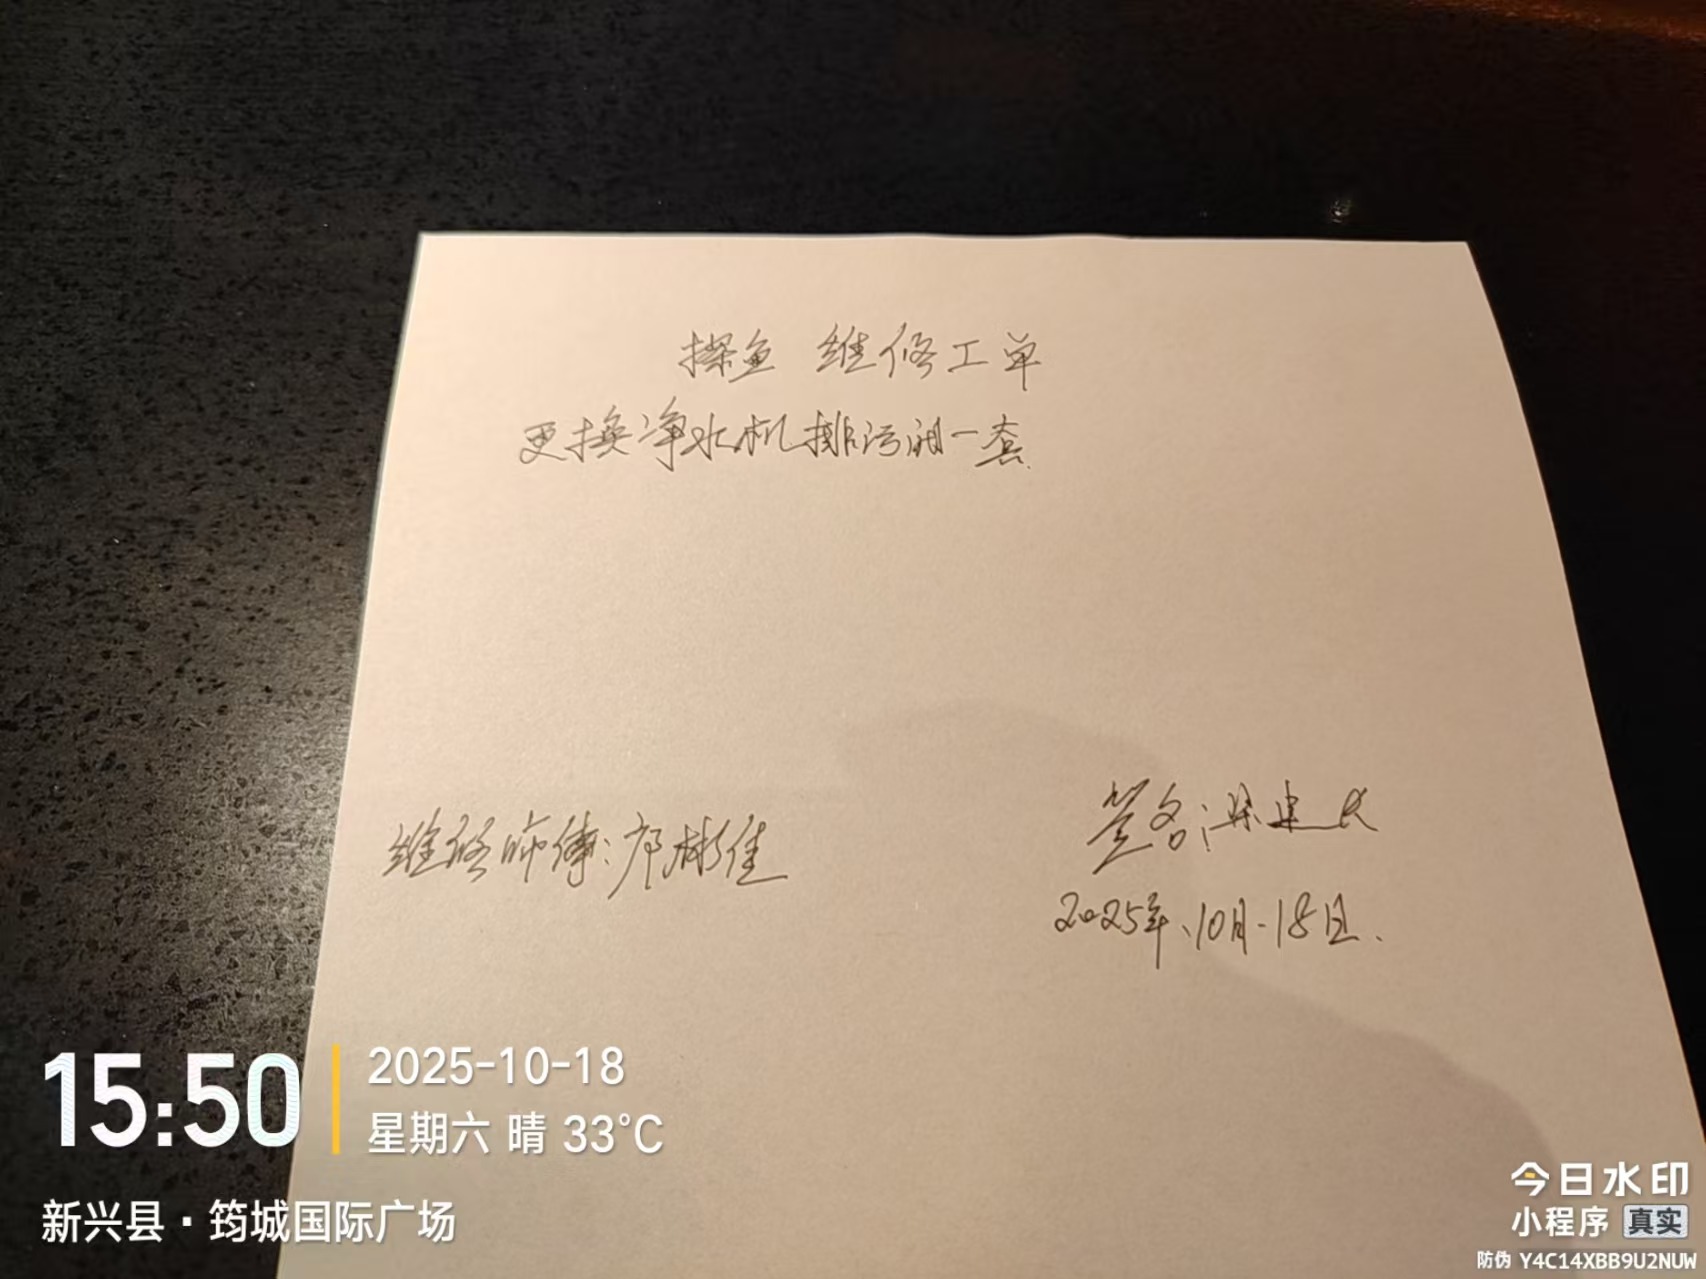 探鱼 维修工单
更换净水机排污阀一套.
维修师傅:邝彬佳
签名:梁建
2025年、10月-18日.
15:50
2025-10-18
星期六 晴 33°C
新兴县·筠城国际广场
今日水印
小程序 真实
防伪 Y4C14XBB9U2NUW